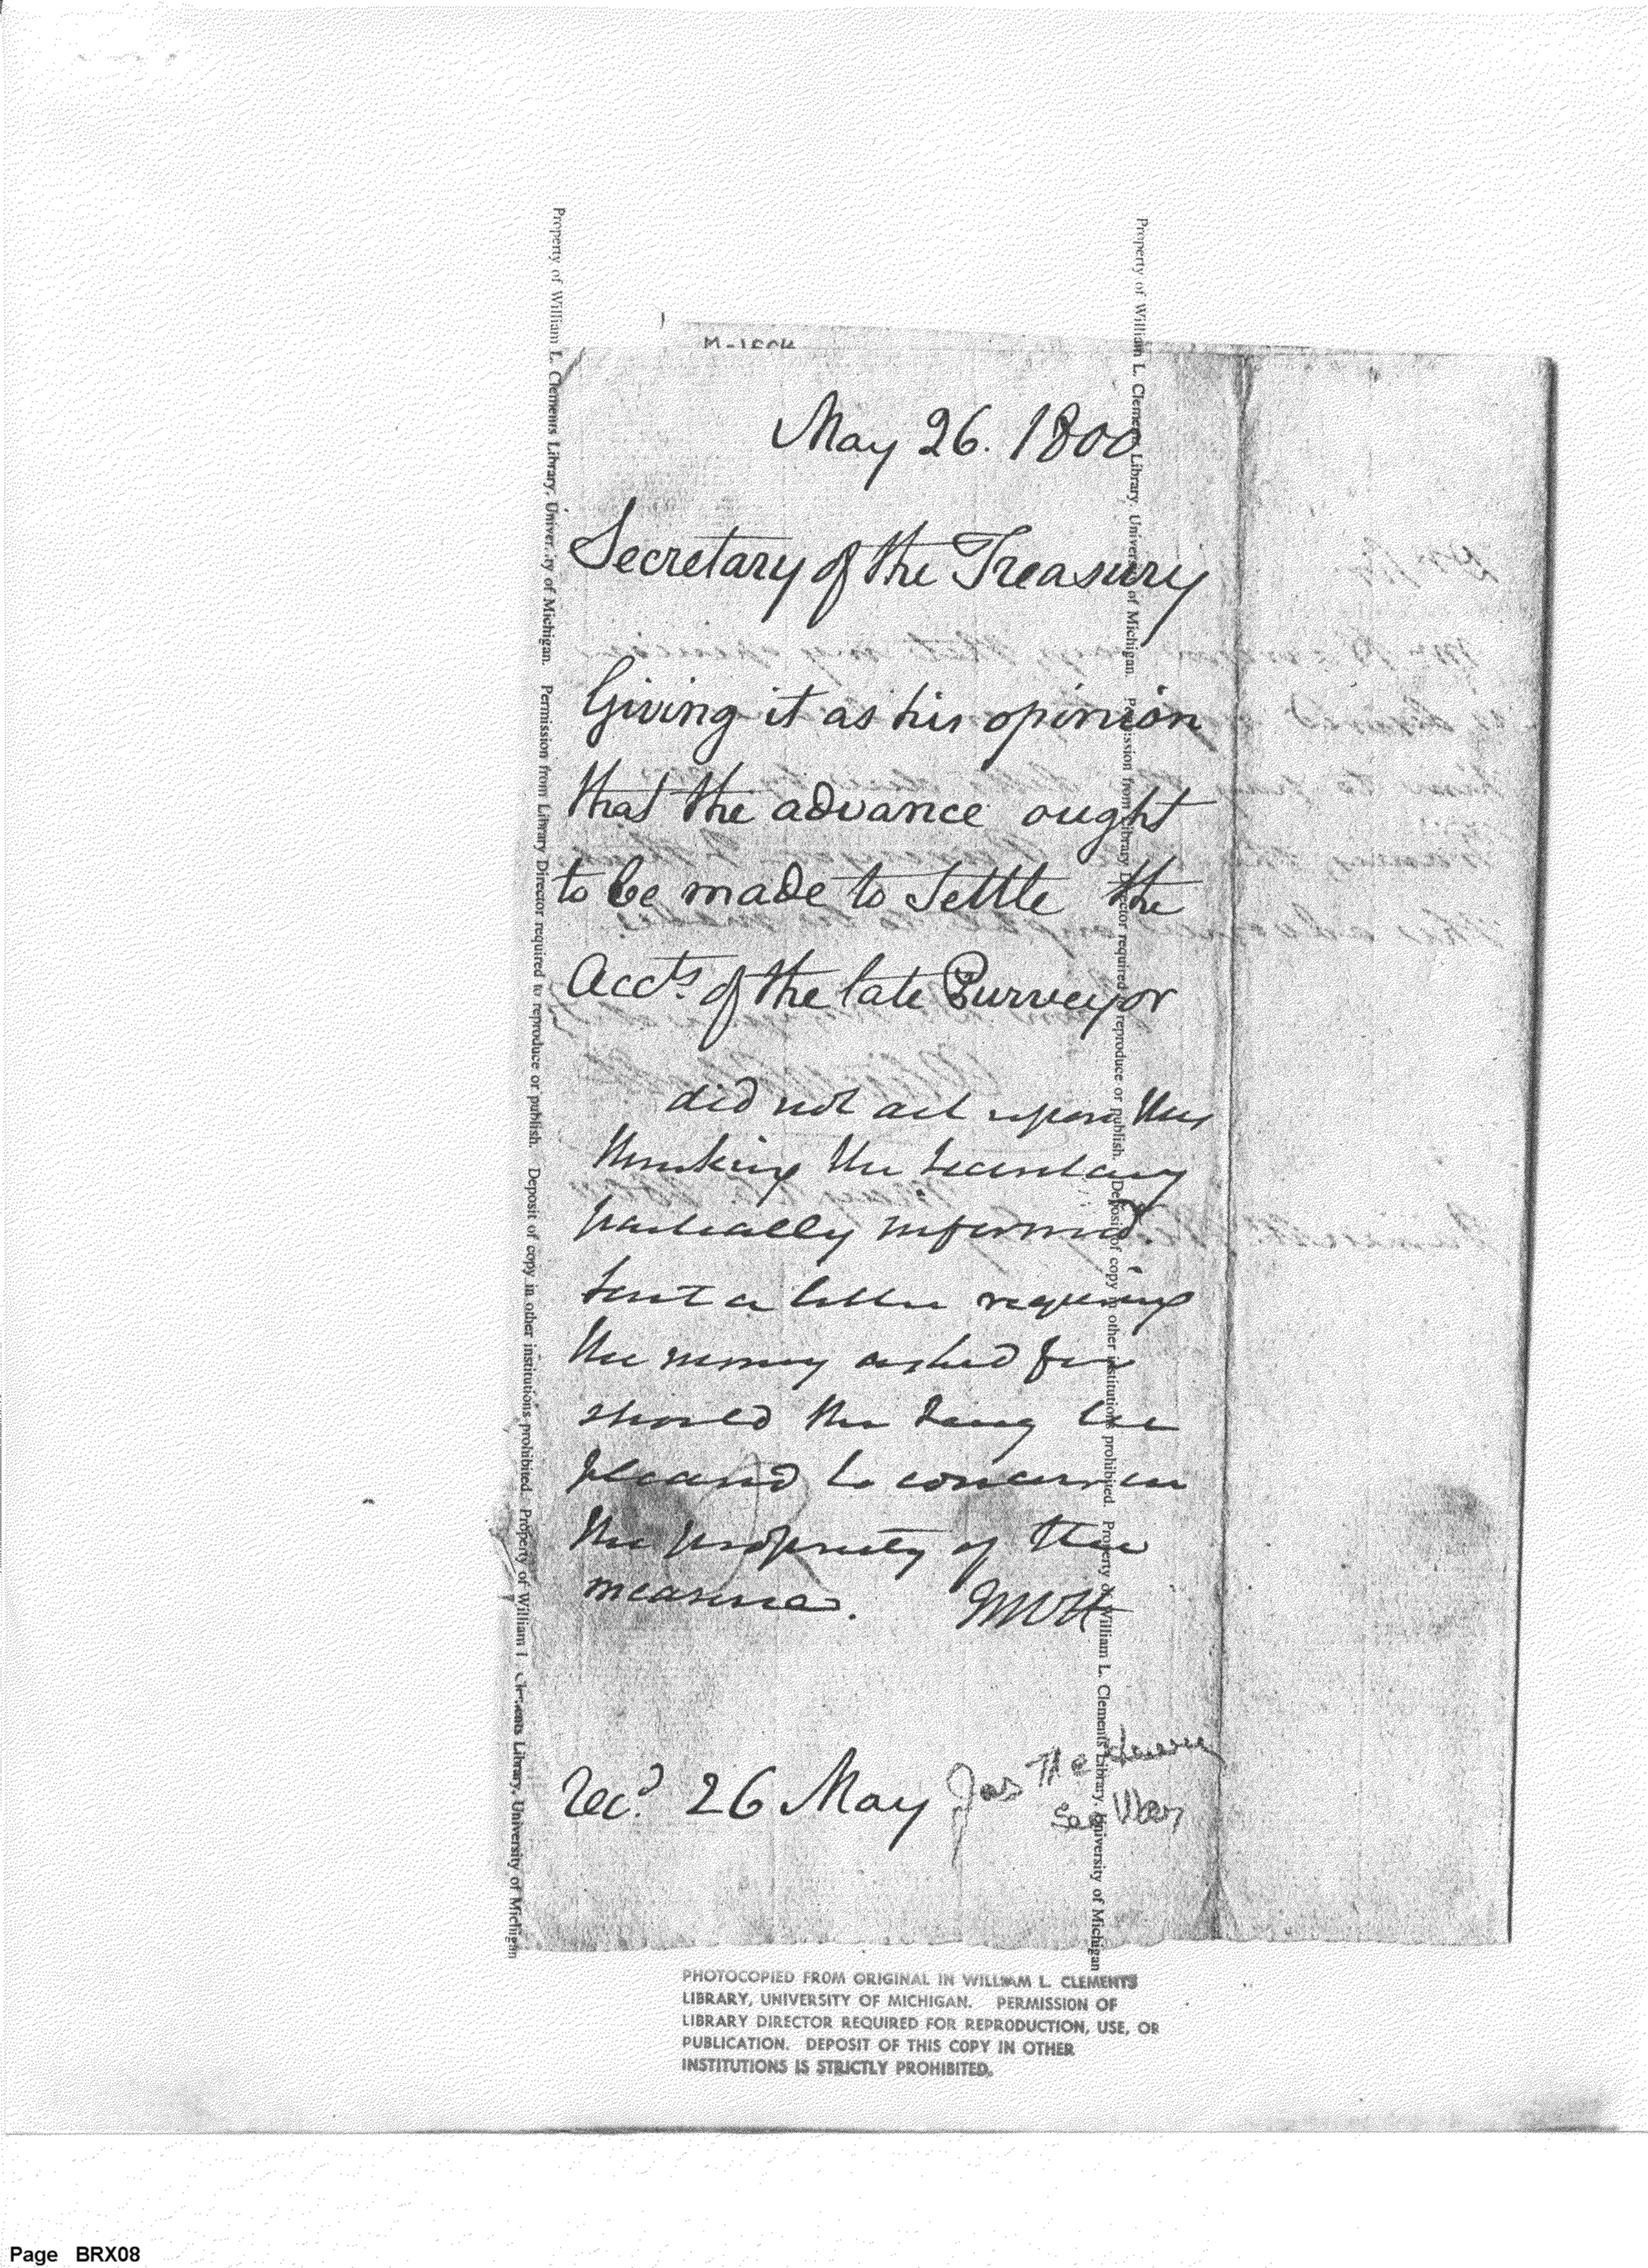 May 26. 1800
Secretary of the Treasury
Giving it as his opinion
that the advance ought
to be made to settle the
Accts. of the late Purveyor
did not act upon this
thinking the Secretary
partially informed.
Sent a letter requiring
the money asked for
should the Secy be
pleased to concur in
the propriety of the
measure.
Rec'd. 26 May Jas McHenry
Sec War
Property of William L. Clements Library, University of Michigan. Permission from Library Director required to reproduce or publish. Deposit of copy in other institutions prohibited. Property of William L. Clements Library, University of Michigan
Property of William L. Clements Library, University of Michigan. Permission from Library Director required to reproduce or publish. Deposit of copy in other institutions prohibited. Property of William L. Clements Library, University of Michigan
PHOTOCOPIED FROM ORIGINAL IN WILLIAM L. CLEMENTS
LIBRARY, UNIVERSITY OF MICHIGAN. PERMISSION OF
LIBRARY DIRECTOR REQUIRED FOR REPRODUCTION, USE, OR
PUBLICATION. DEPOSIT OF THIS COPY IN OTHER
INSTITUTIONS IS STRICTLY PROHIBITED.
Page BRX08